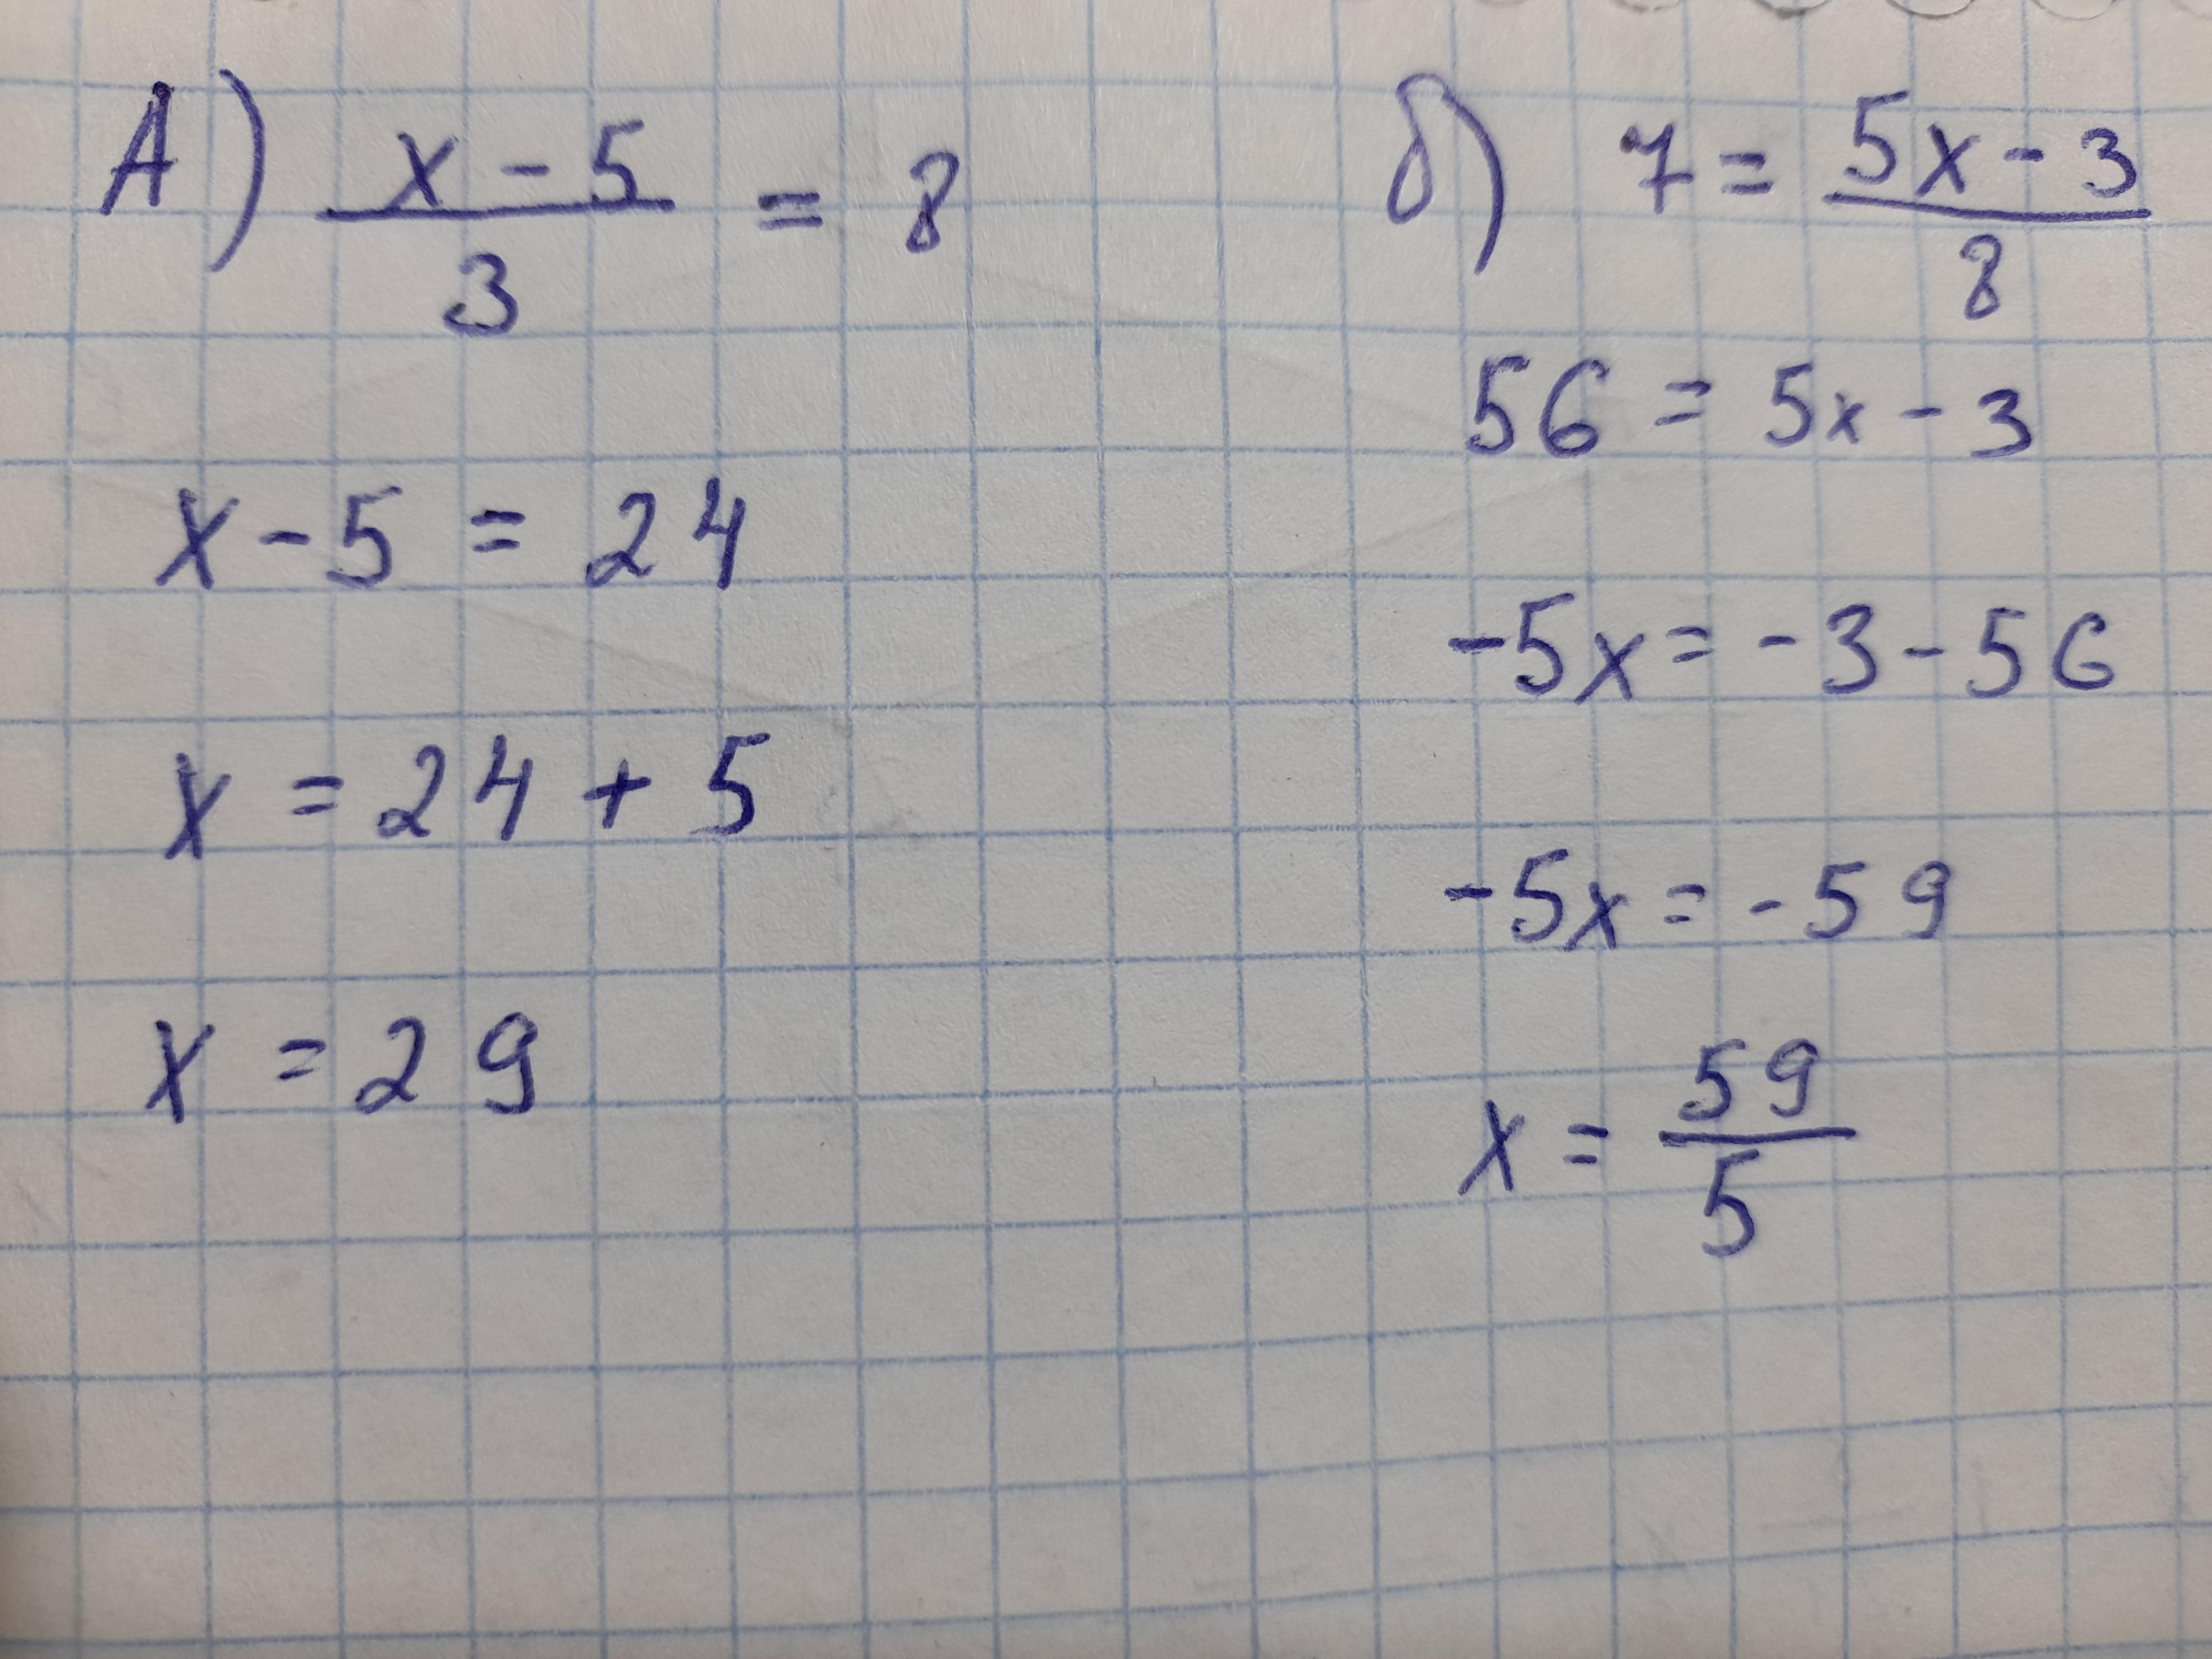 А) (x - 5)/3 = 8
x - 5 = 24
x = 24 + 5
x = 29
б) 7 = (5x - 3)/8
56 = 5x - 3
-5x = -3 - 56
-5x = -59
x = 59/5